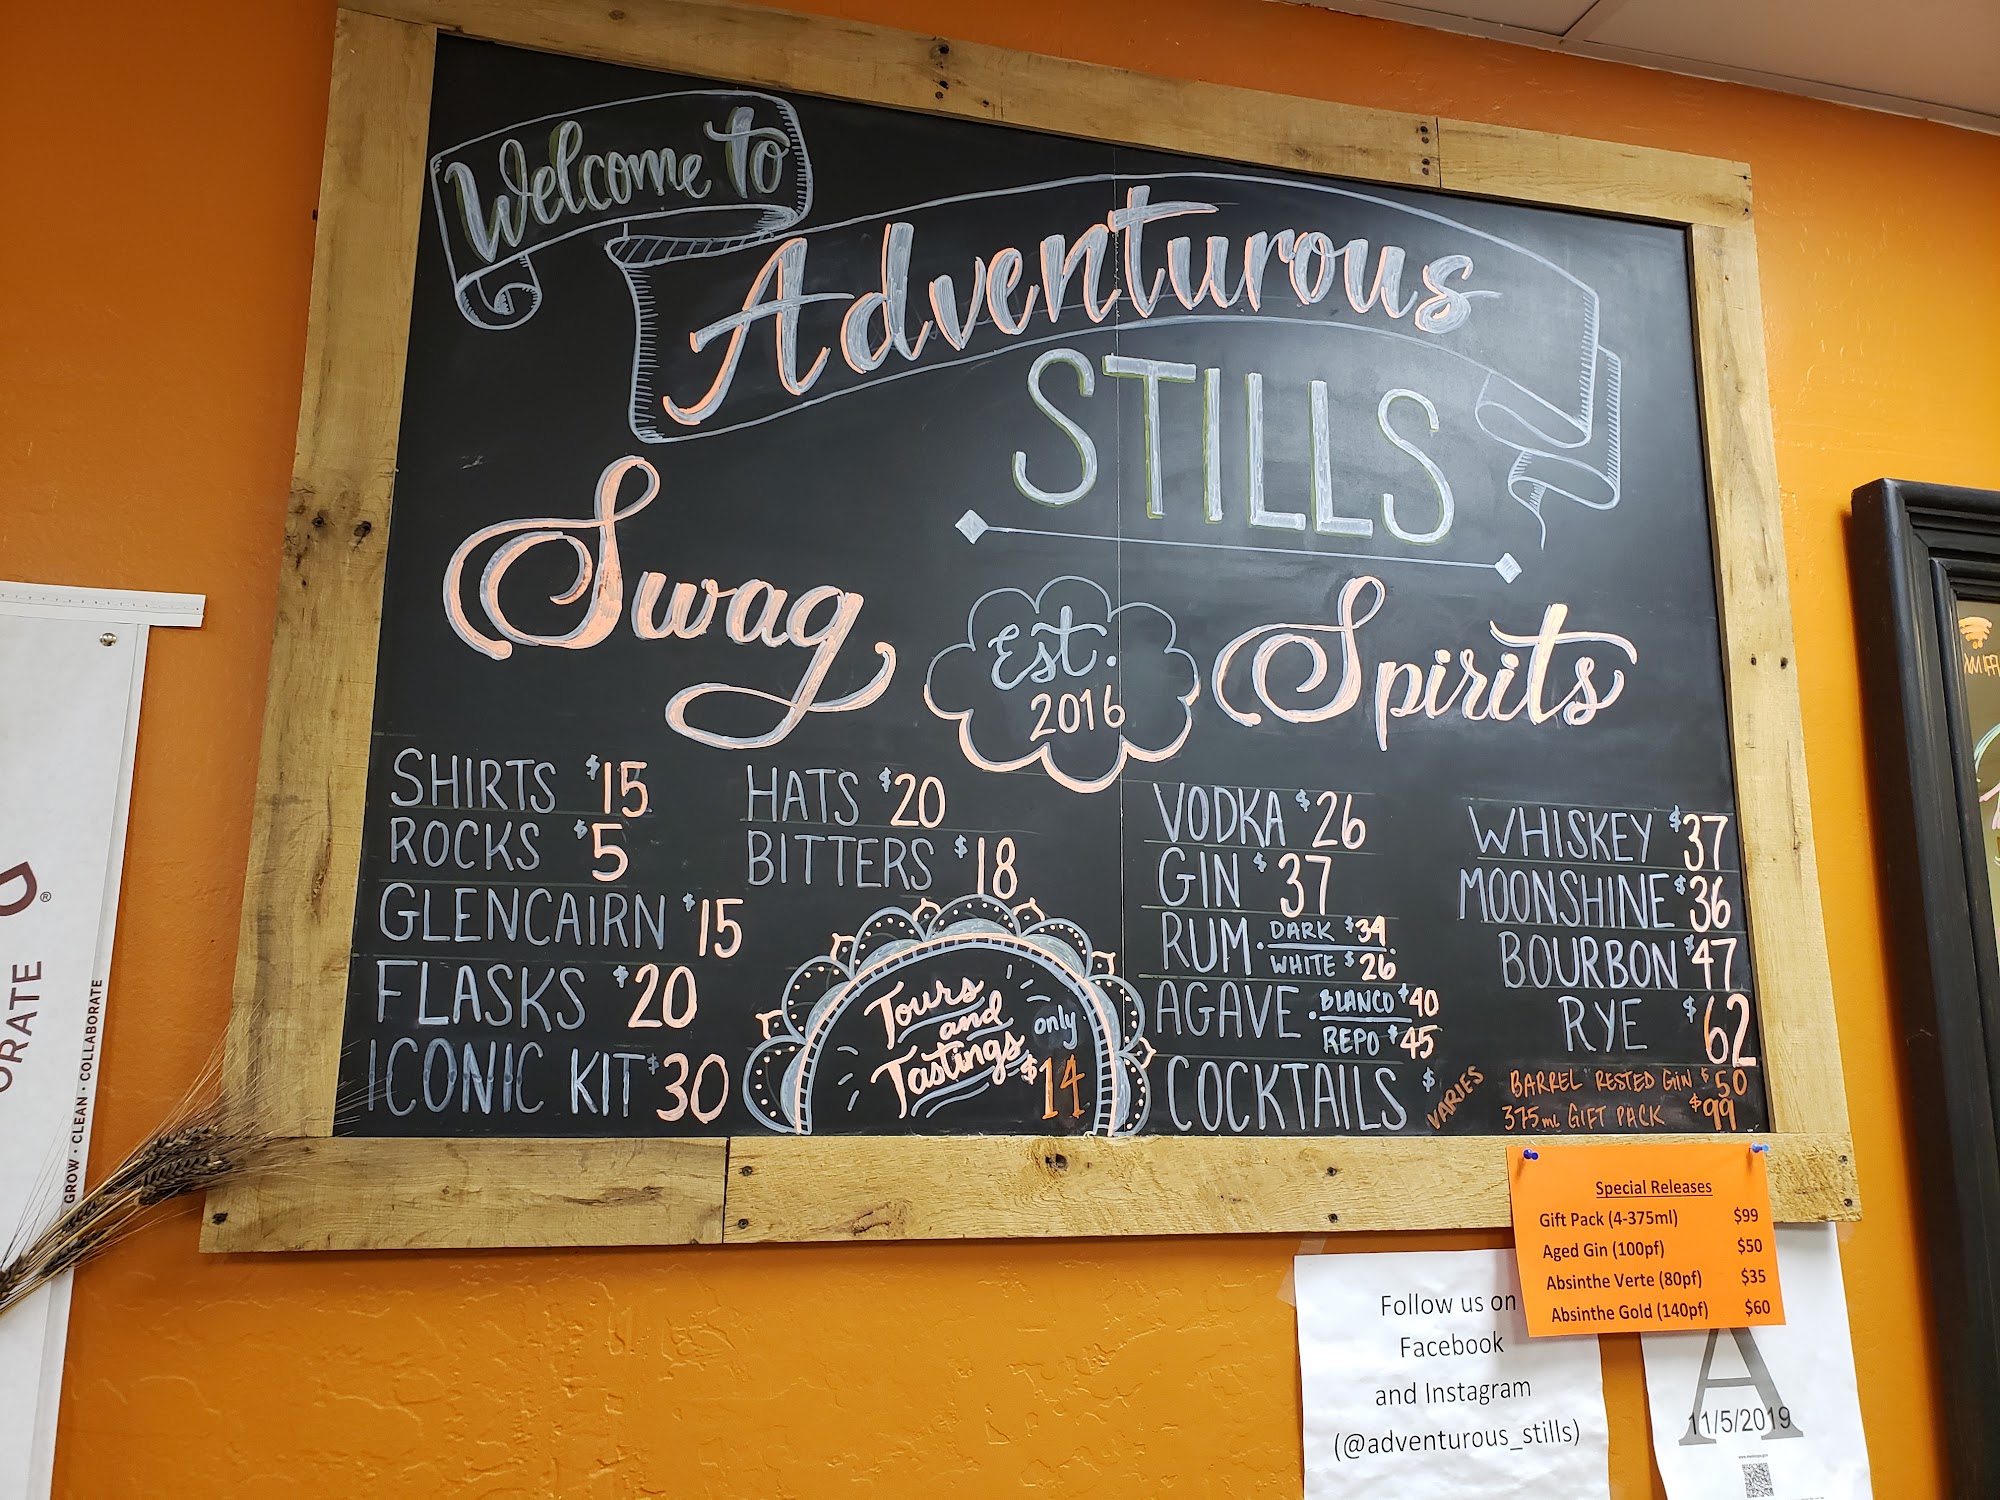 Welcome to
Adventurous
STILLS
Swag
Est.
2016
Spirits
SHIRTS $15
ROCKS $5
GLENCAIRN $15
FLASKS $20
ICONIC KIT $30
HATS $20
BITTERS $18
Tours
and
Tastings
only
$14
VODKA $26
GIN $37
RUM • DARK $34
WHITE $26
AGAVE • BLANCO $40
REPO $45
COCKTAILS $ VARIES
WHISKEY $37
MOONSHINE $36
BOURBON $47
RYE $62
BARREL "RESTED GIN $50
375ml GIFT PACK $99
Special Releases
Gift Pack (4-375ml) $99
Aged Gin (100pf) $50
Absinthe Verte (80pf) $35
Absinthe Gold (140pf) $60
Follow us on
Facebook
and Instagram
(@adventurous_stills)
A
11/5/2019
ORATE
®
GROW · CLEAN · COLLABORATE